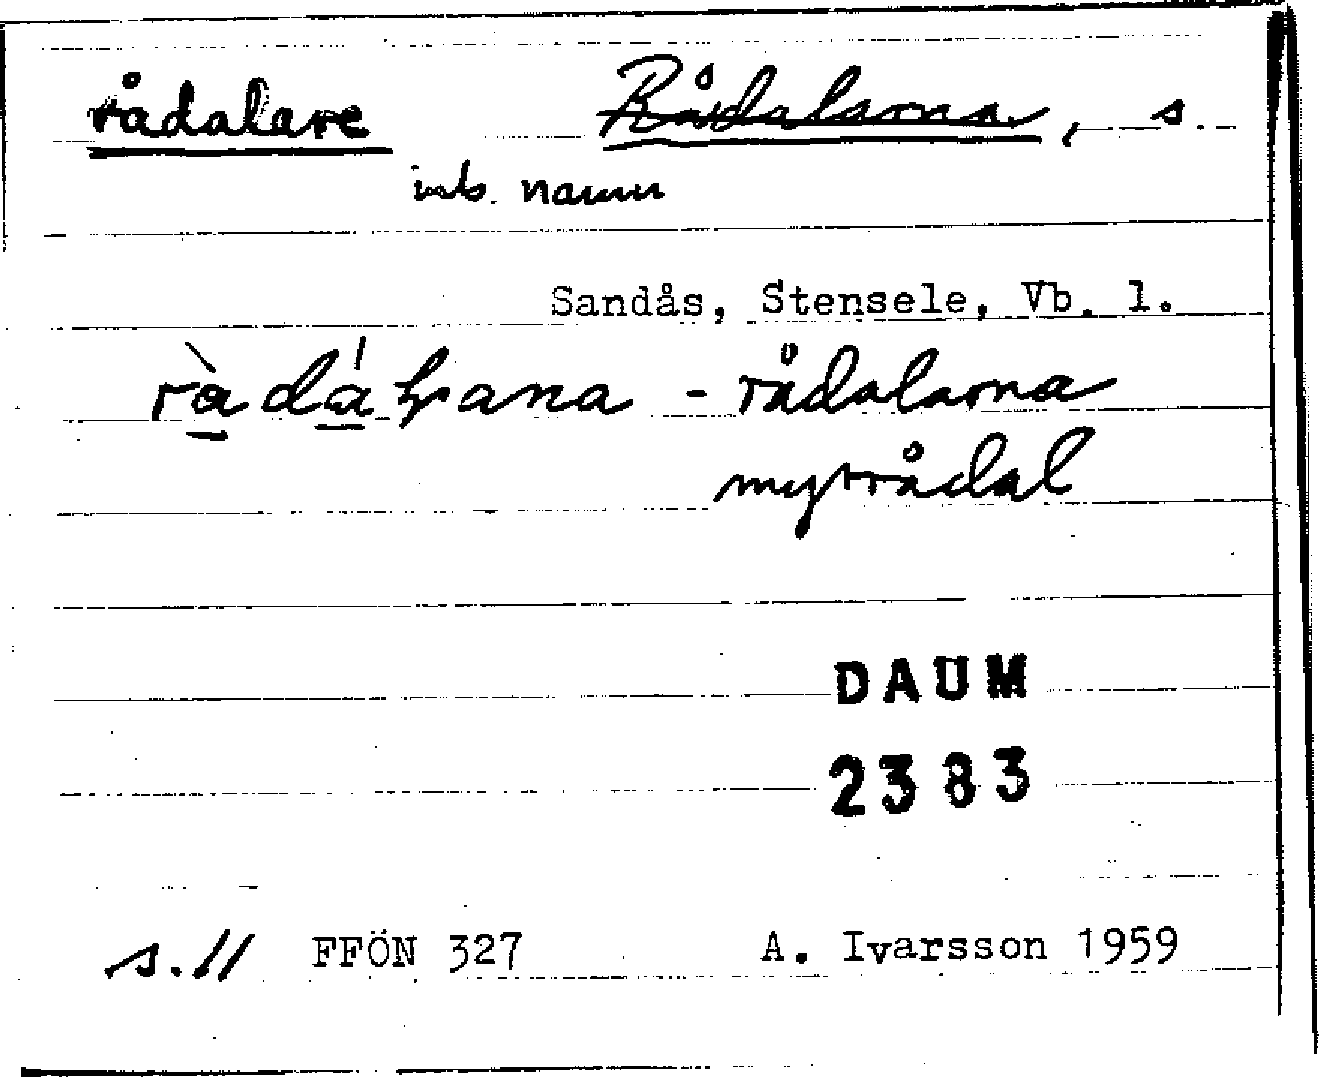 rådalare Rådalarna, s.
inb. namn
Sandås, Stensele, Vb. l.
ràdáɽana - rådalarna
myrrådal
DAUM
2383
s. 11 FFÖN 327 A. Ivarsson 1959